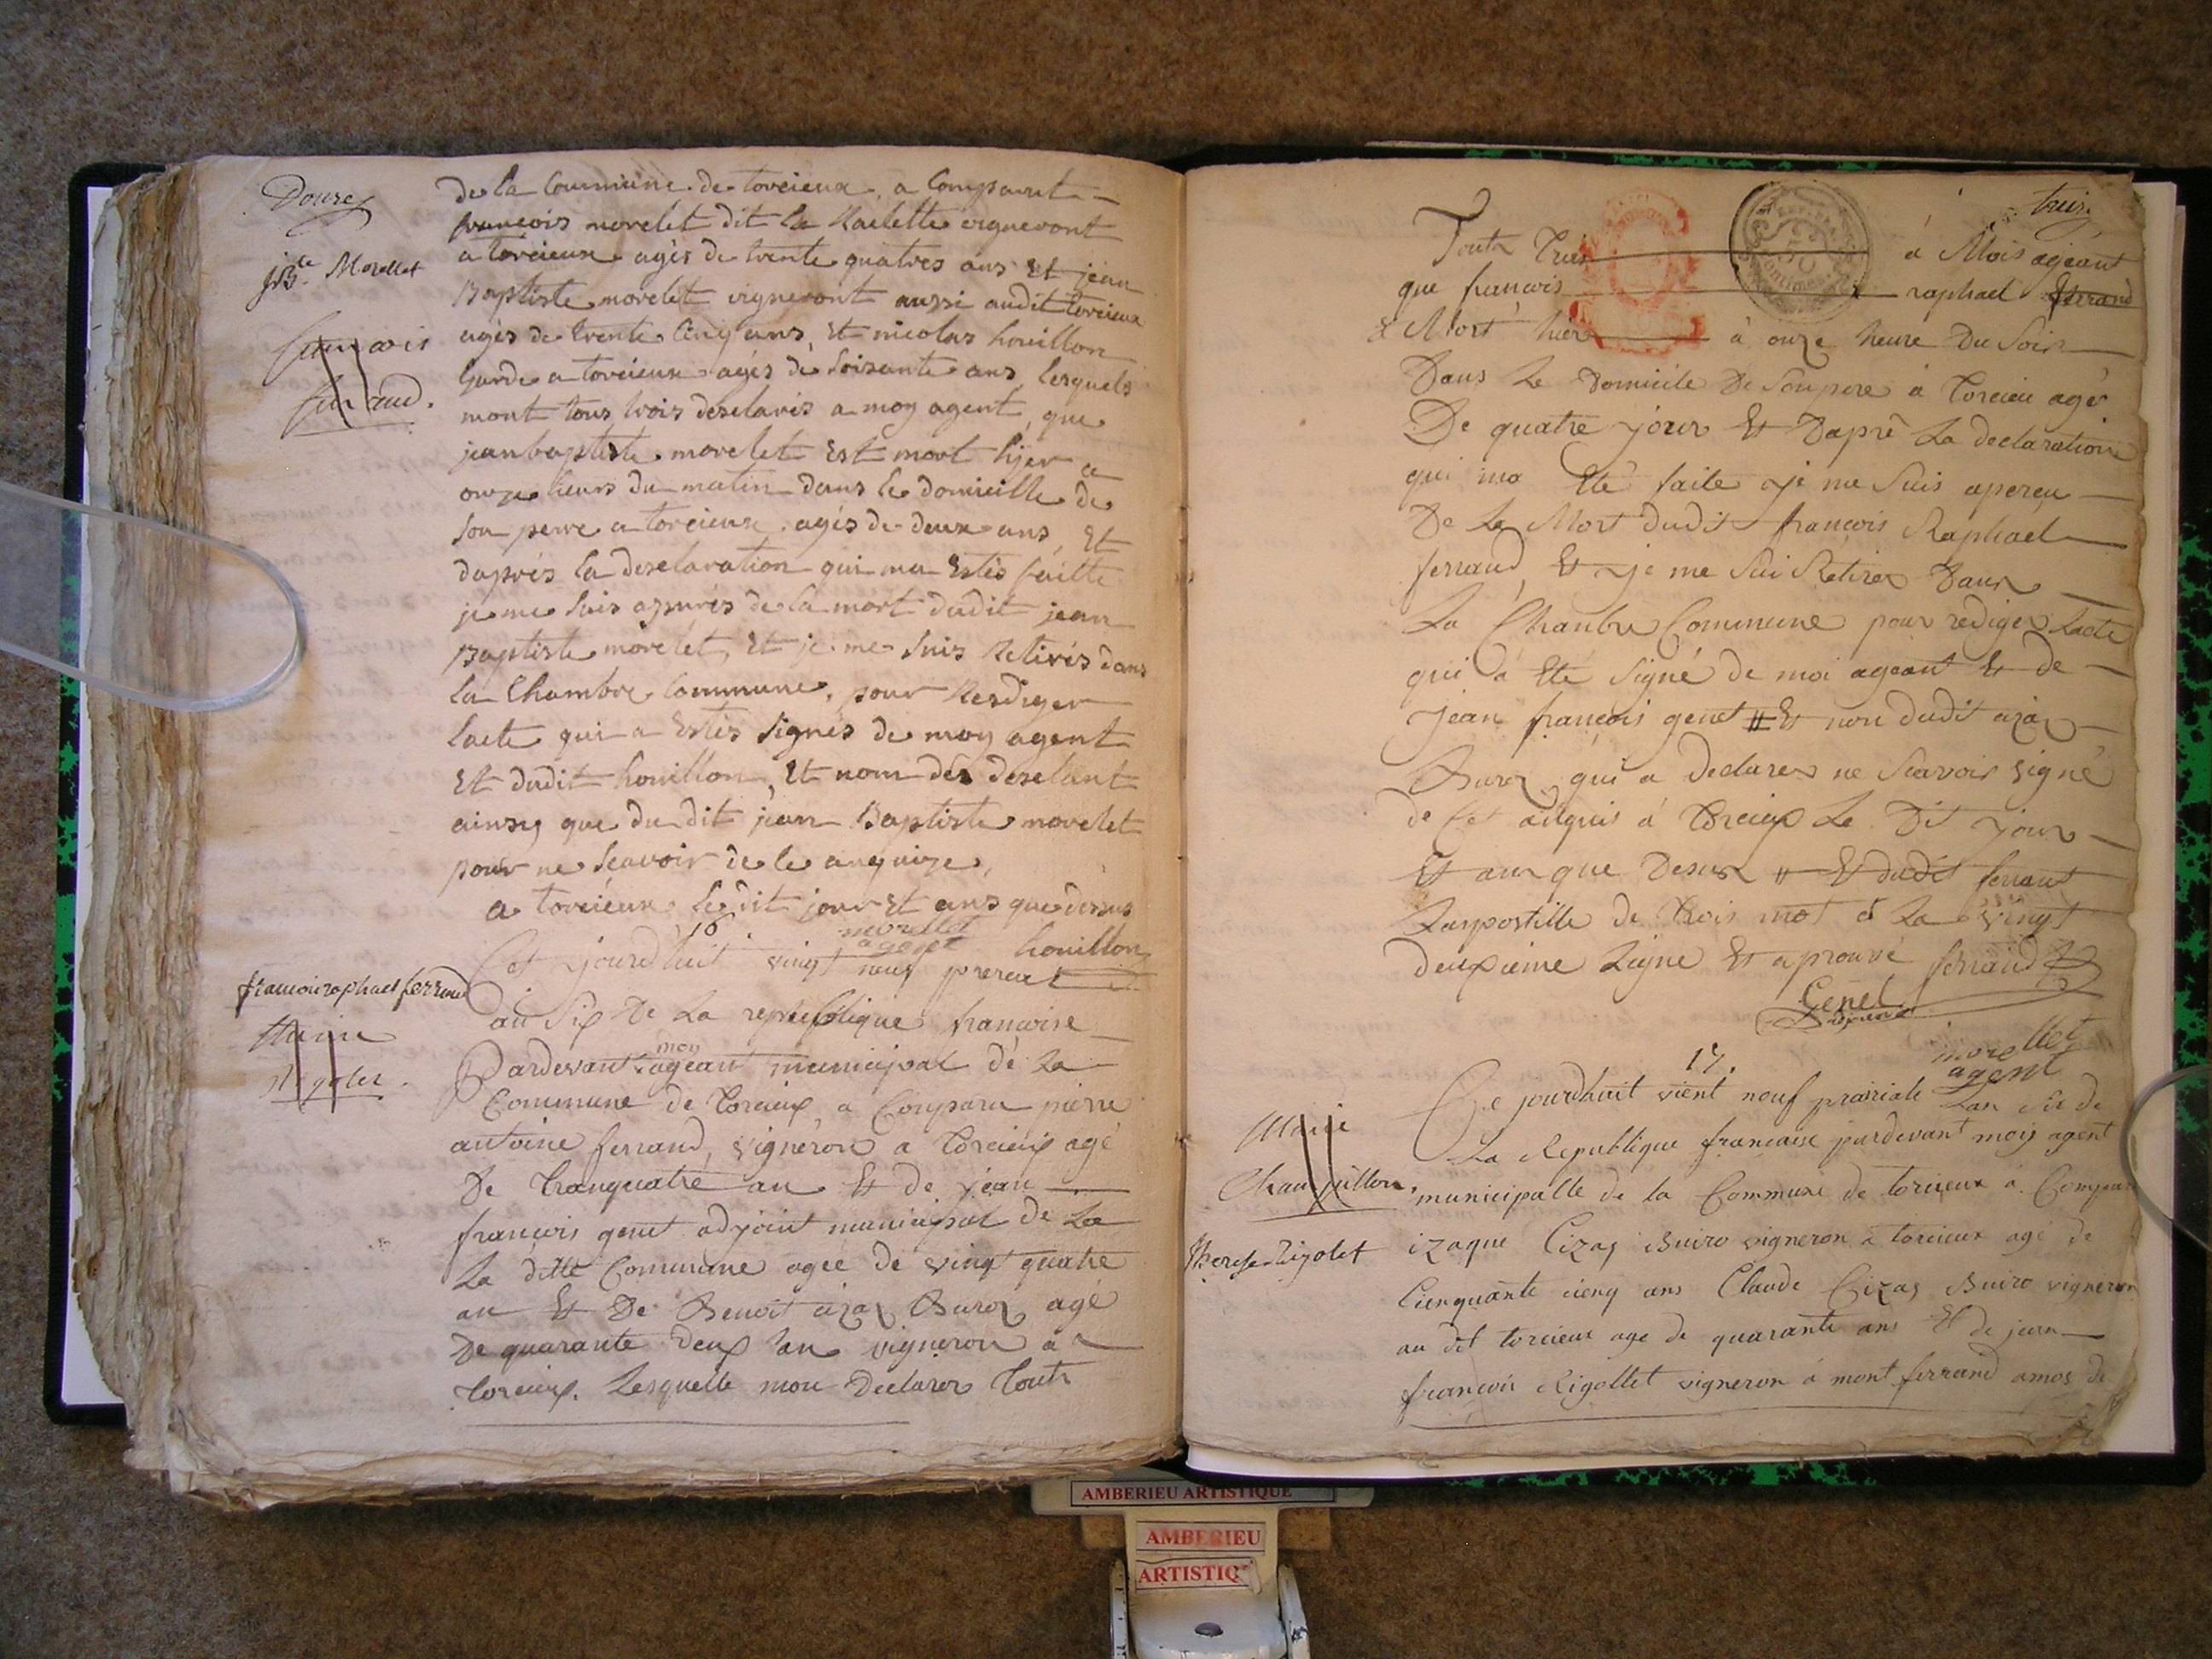 Douze
de la Commune de torcieux a Comparut
françois morelet dit la Raclette vigneront
jBte Morellet
a torcieux agés de trente quatres ans Et jean
Baptiste morelet vigneront aussi audit torcieux
françois
agés de trente Cinq ans, Et nicolas houillon
garde a torcieux agés de soisante ans lesquels
ferraud.
mont tous trois deselarés a moy agent, que
jean baptiste morelet Est mort hjer a
onze heurs du matin dans le domicille de
son perre a torcieux agés de deux ans Et
daprés la deselaration qui ma Estés faitte
je me suis assurés de la mort dudit jean
Baptiste morelet, Et je me suis Retirés dans
la Chambre Commune, pour Resdiger
lacte qui a Estés signés de moy agent
Et dudit houillon, Et nom des deselant
ainsy que du dit jean Baptiste morelet
pour ne scavoir de le anquize,
a torcieux le dit jour Et ans que dessus
16 morellet agent houillon
Cet jourdhuit vingt neuf prereal
francoiraphael ferrand
an Six De La republique francoise
Marie
Rigolet.
Pardevant moy ageant municipal dé La
Commune de Torcieux a Comparu pierre
antoine ferrand, vigneron a Torcieux agé
De Tranquatre an Et de jean
francois genet adjoint municipal de La
La ditte Commune agée de vingt quatre
an Et De Benoit Buroz agé
De quarante Deux an vigneron a
Torcieux. Lesquelle mon Declarer Touts
treize
Touts Trois à Mois ageant
que francois raphael ferrand
& Mort hier à onze heure Du Soir
Dans Le Domicile De Son pere à Torcieu agé
De quatre jour Et Daprê La declaration
qui ma Eté faite je me Suis aperçu
De Le Mort dudit françois Raphael
ferraud, Et je me Sui Retirer Dans
La Chanbre Commune pour rediger Lacte
qui à Eté Signé De moi ageant Et de
jean françois genet # Et non dudit
Buroz qui a Declarer ne Scavoir signé
de Cet à Torcieux Le Dit jour
Et an que Desus # Et dudit ferraut
Lapostille de Trois mot à La vingt
deuxieme Ligne Et aprouvé ferraud
Genet
17. morellet agent
Ce jourdhuit vient neuf prairiale Lan six de
Marie
La Republique francaise pardevant mois agent
Chanpillon.
municipalle de la Commune de torcieux à Compar
therese Rigolet
izaque Cizaz Buiro vigneron à torcieux agé de
Cienquante cienq ans Claude Cizaz Buiro vigneron
au dit torcieux age de quarante ans Et de jean
françois Rigollet vigneron à mont ferrand amos de
AMBERIEU ARTISTIQUE
AMBERIEU
ARTISTIQ